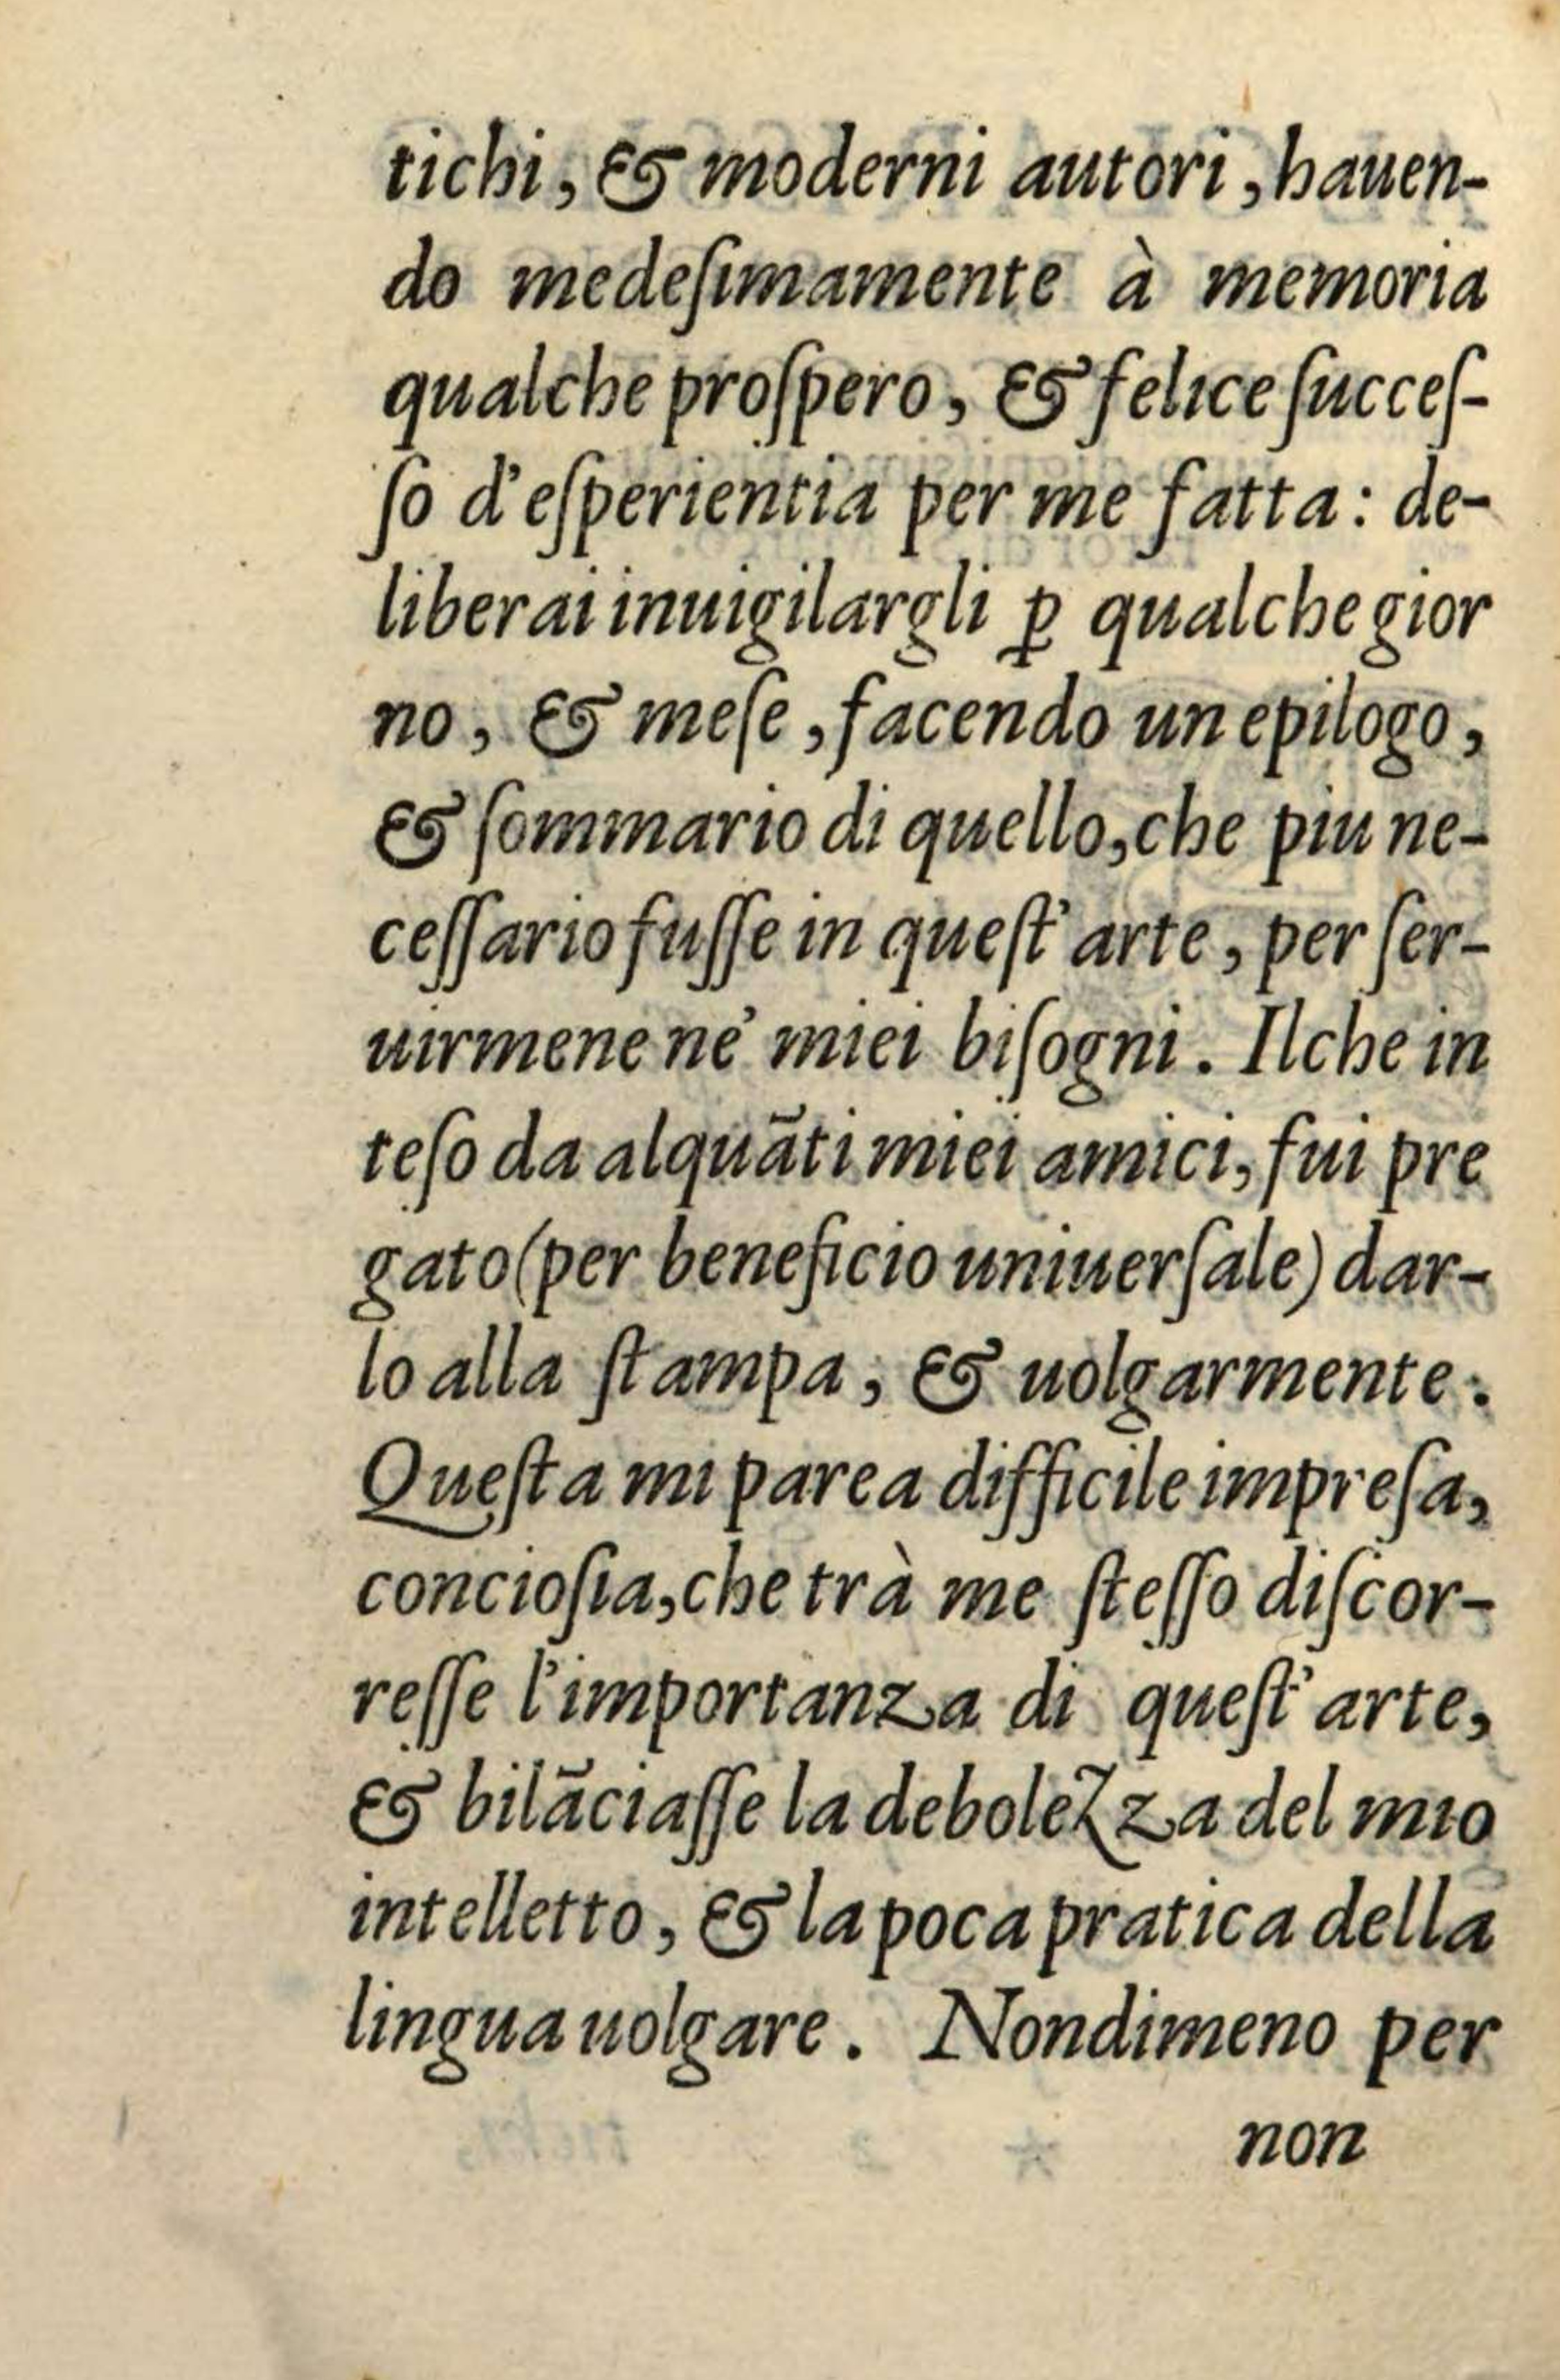 tichi, & moderni autori, hauen-
do medeſimamente à memoria
qualche proſpero, & felice ſucceſ-
ſo d'eſperientia per me fatta: de-
liberai inuigilargli ꝑ qualche gior
no, & meſe, facendo un epilogo,
& ſommario di quello, che piu ne-
ceſſario fuſſe in queſt' arte, per ſer-
uirmene ne' miei biſogni. Ilche in
teſo da alquāti miei amici, fui pre
gato (per beneficio uniuerſale) dar-
lo alla ſtampa, & uolgarmente.
Queſta mi parea difficile impreſa,
concioſia, che trà me ſteſſo diſcor-
reſſe l'importanza di queſt' arte,
& bilāciaſſe la debolezza del mio
intelletto, & la poca pratica della
lingua uolgare. Nondimeno per
non